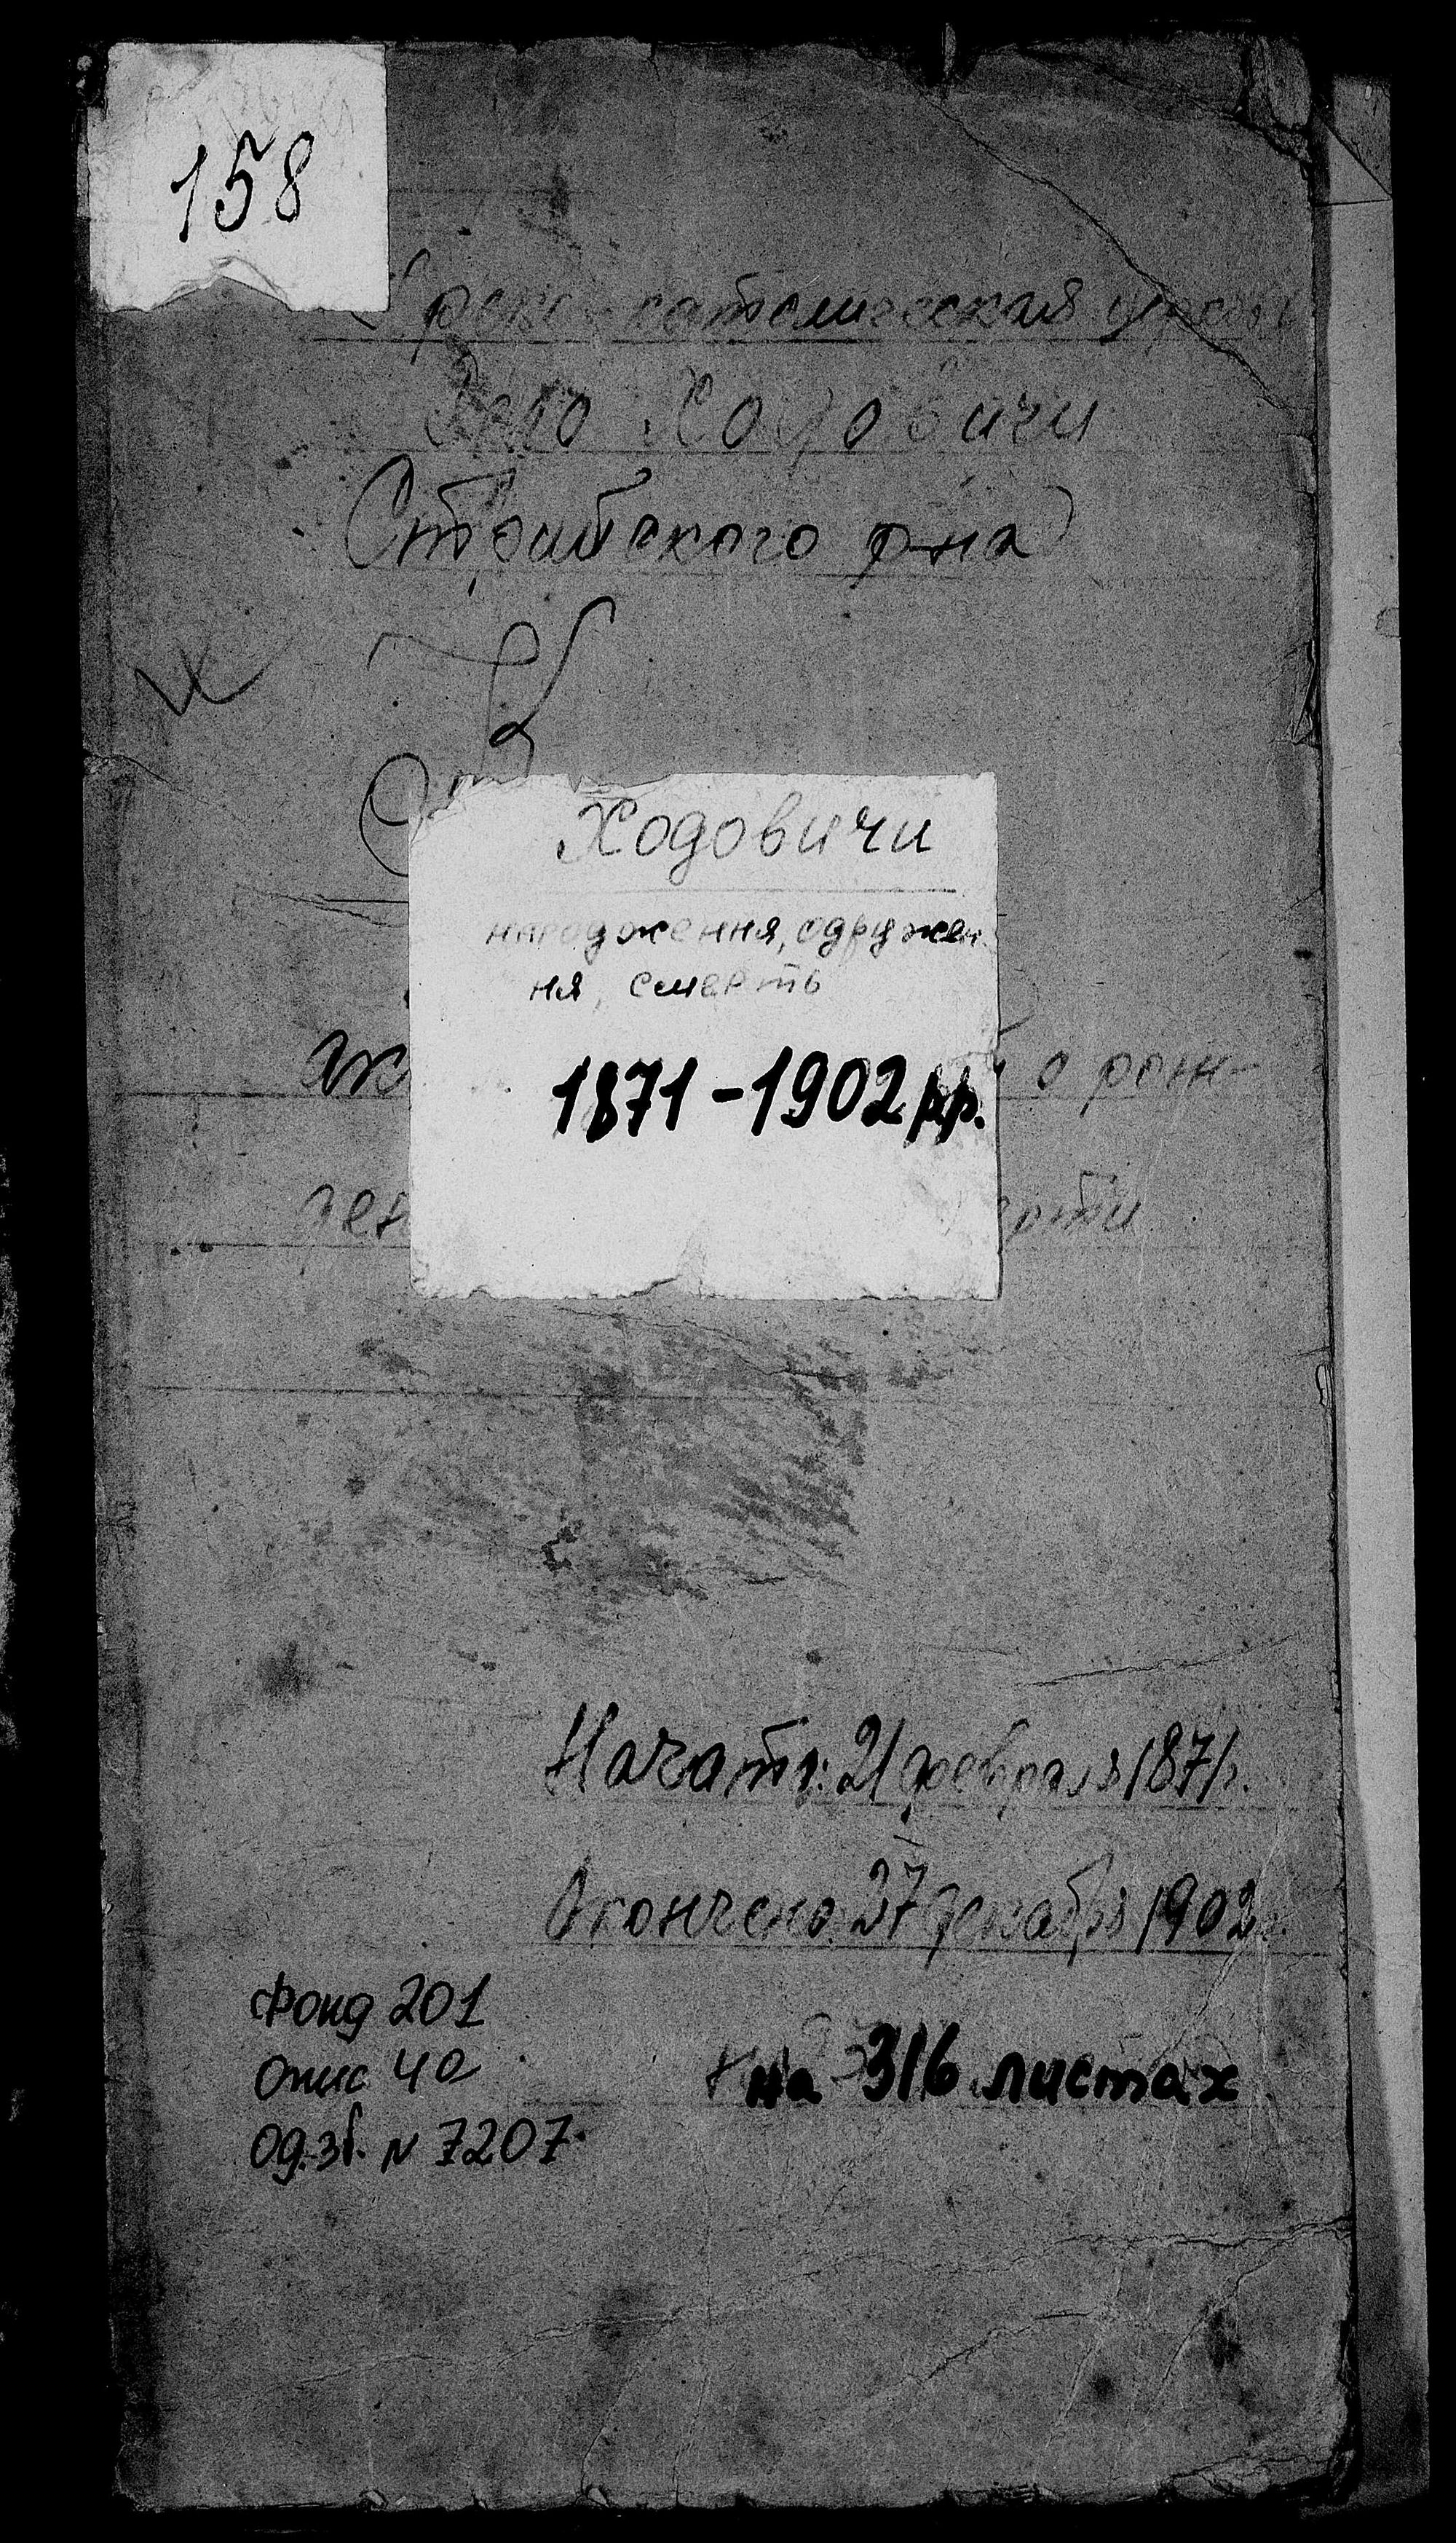 158
Греко-католическая церковь
Село Ходовичи
Стрийского р-на
Ходовичи
народження, одружен
ня, смерть
1871-1902 рр.
о рож-
ден
ерти
Начато: 21 февраля 1871г.
Окончено: 27 декабря 1902г.
Фонд 201
Опис 4а
Од.зб. N 7207.
на 316 листах